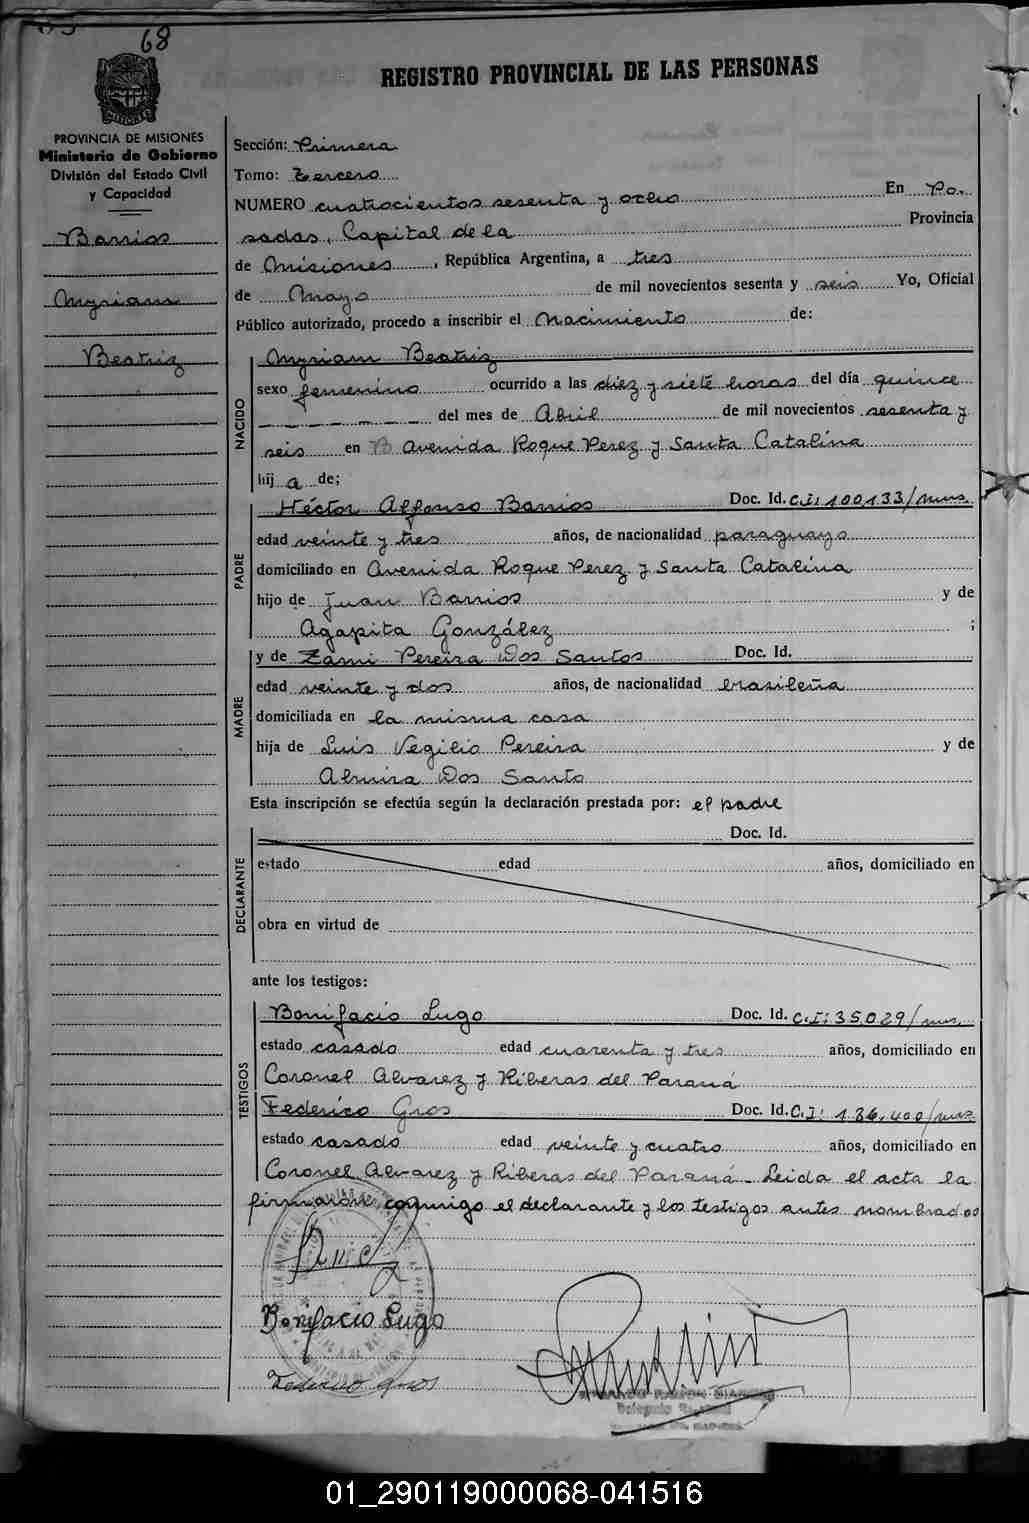 68
REGISTRO PROVINCIAL DE LAS PERSONAS
PROVINCIA DE MISIONES
Ministerio de Gobierno
División del Estado Civil
y Capacidad
Barrios
Myriam
Beatriz
Sección: Primera
Tomo: Tercero
NUMERO cuatrocientos sesenta y ocho En Po.
sadas, Capital de la Provincia
de Misiones, República Argentina, a tres
de Mayo de mil novecientos sesenta y seis Yo, Oficial
Público autorizado, procedo a inscribir el Nacimiento de:
NACIDO
Myriam Beatriz
sexo femenino ocurrido a las diez y siete horas del día quince
del mes de Abril de mil novecientos sesenta y
seis en Avenida Roque Perez y Santa Catalina
hij a de;
PADRE
Héctor Alfonso Barrios Doc. Id. C.I: 100,133/mns.
edad veinte y tres años, de nacionalidad paraguayo
domiciliado en Avenida Roque Perez y Santa Catalina
hijo de Juan Barrios y de
Agapita González ;
MADRE
y de Zami Pereira Dos Santos Doc. Id.
edad veinte y dos años, de nacionalidad brasileña
domiciliada en la misma casa
hija de Luis Vegilio Pereira y de
Almira Dos Santo
Esta inscripción se efectúa según la declaración prestada por: el padre
DECLARANTE
Doc. Id.
estado edad años, domiciliado en
obra en virtud de
ante los testigos:
TESTIGOS
Bonifacio Lugo Doc. Id. C.I: 35,029/mns.
estado casado edad cuarenta y tres años, domiciliado en
Coronel Alvarez y Riberas del Paraná
Federico Gros Doc. Id. C.I: 136,400/mns
estado casado edad veinte y cuatro años, domiciliado en
Coronel Alvarez y Riberas del Paraná. Leida el acta la
firmaron conmigo el declarante y los testigos antes nombrados
Bonifacio Lugo
Federico gros
01_290119000068-041516